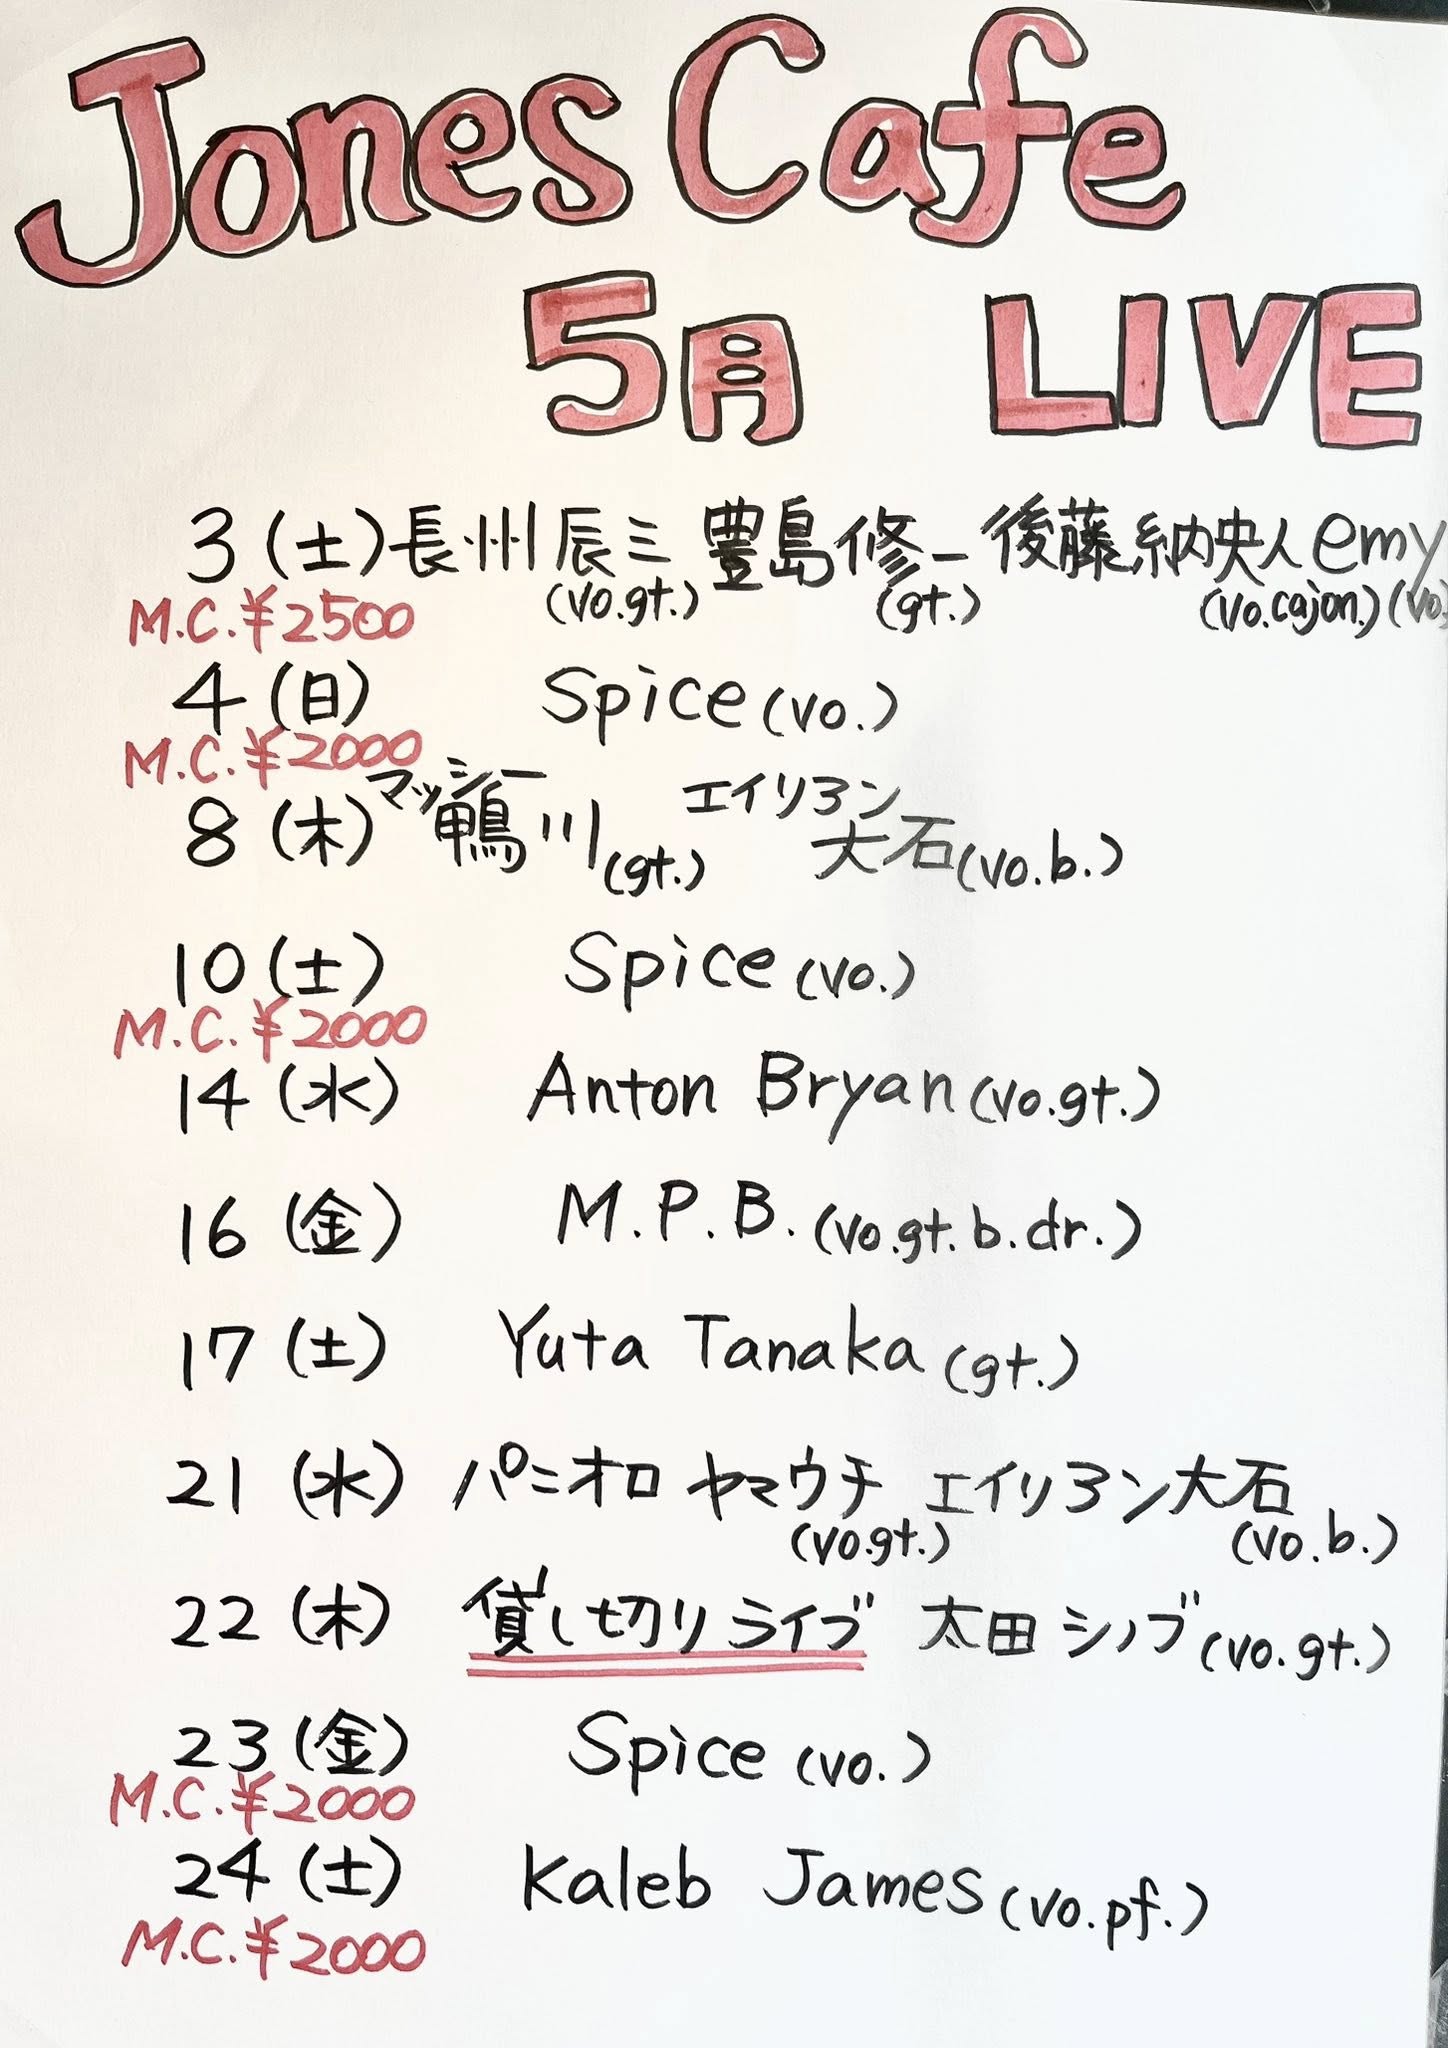 Jones Cafe
5月 LIVE
3(土)長州辰三 豊島修一 後藤納央人 emy
(vo.gt.) (gt.) (vo.cajon.) (vo.
M.C.¥2500
4(日) Spice(vo.)
M.C.¥2000
マッシー エイリアン
8(木) 鴨川(gt.) 大石(vo.b.)
10(土) Spice(vo.)
M.C.¥2000
14(水) Anton Bryan(vo.gt.)
16(金) M.P.B.(vo.gt.b.dr.)
17(土) Yuta Tanaka(gt.)
21(水) パニオロ ヤマウチ エイリアン大石
(vo.gt.) (vo.b.)
22(木) 貸し切りライブ 太田シノブ(vo.gt.)
23(金) Spice(vo.)
M.C.¥2000
24(土) Kaleb James(vo.pf.)
M.C.¥2000